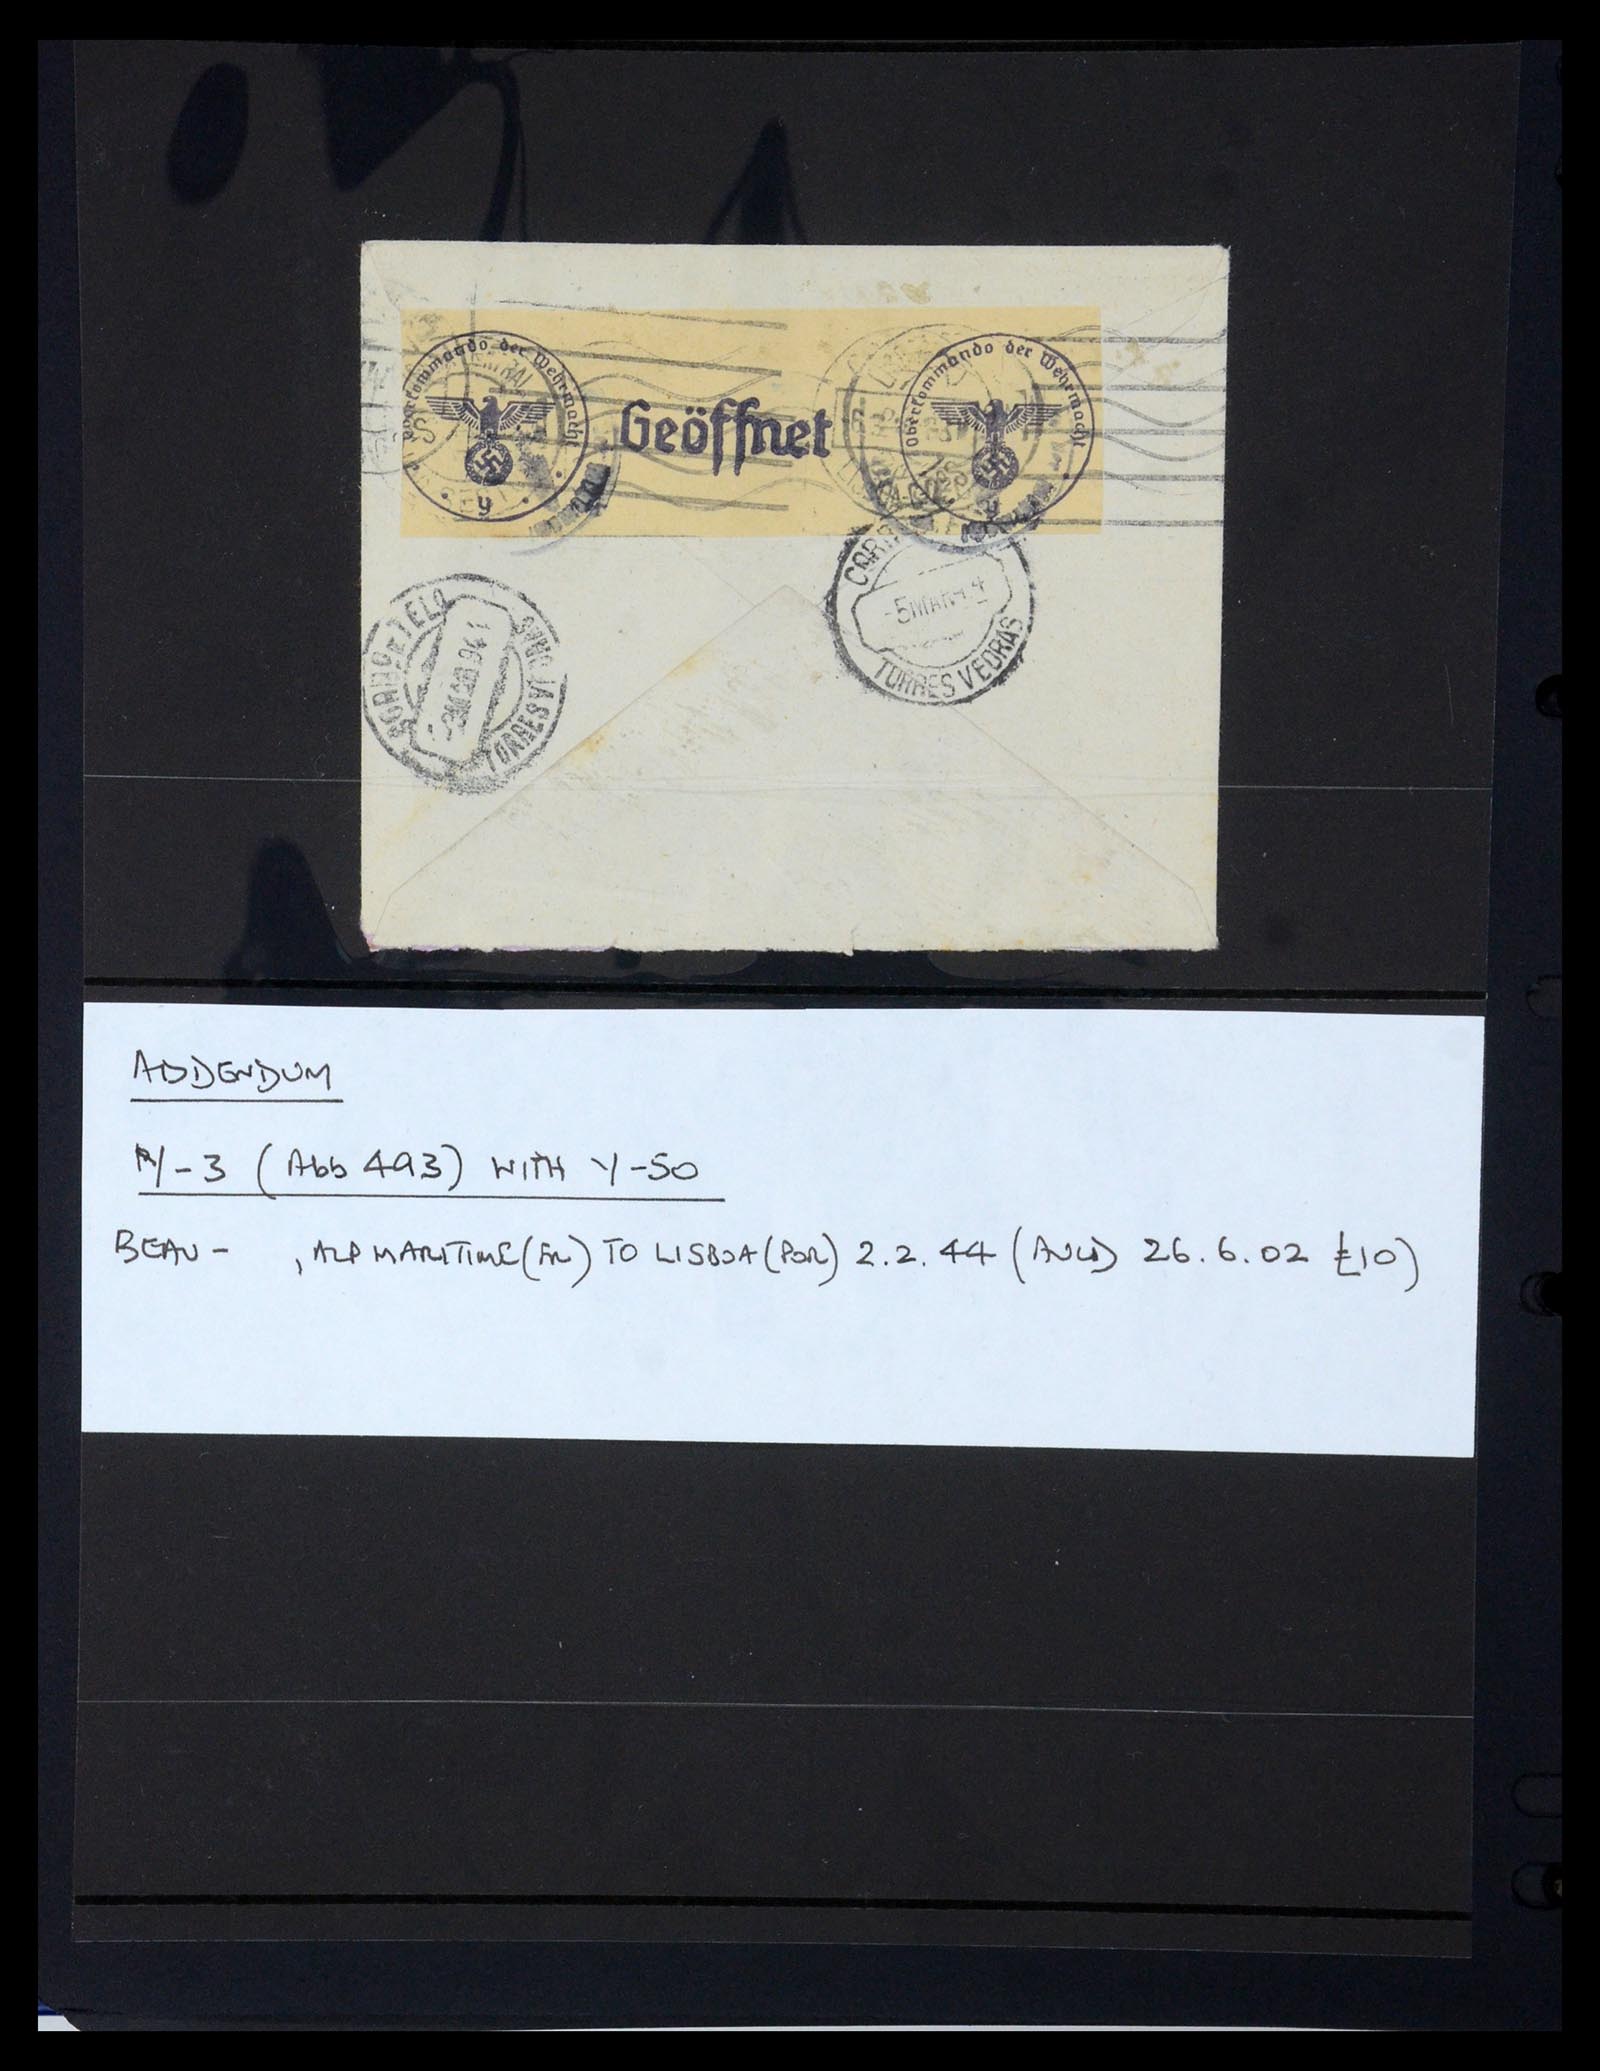 Oberkommando der Wehrmacht
y
Geöffnet
Oberkommando der Wehrmacht
y
CORREIO E TELG
TORRES VEDRAS
-5 MAR
TORRES VEDRAS
ADDENDUM
Y-3 (Abb 493) WITH Y-50
BEAU- , ALP MARITIME (FR) TO LISBOA (POR) 2.2.44 ( 26.6.02 £10)